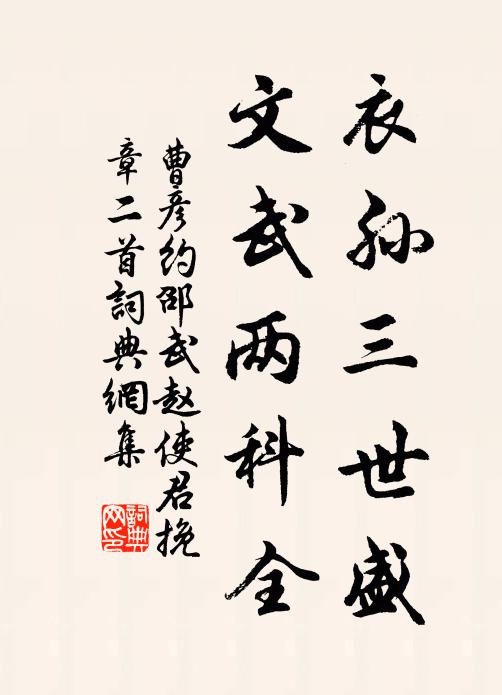 衣孙三世盛
文武两科全
曹彦约邵武赵使君挽
章二首詞典網集
詞典
网印